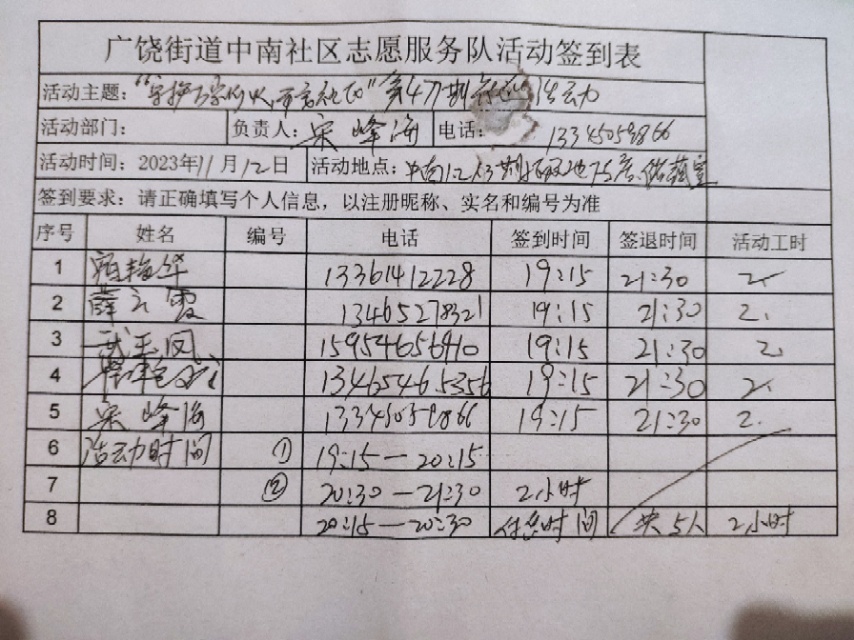 广饶街道中南社区志愿服务队活动签到表
活动主题：“守护万家灯火 平安社区”第47期 活动
活动部门： 负责人：宋峰海 电话： 13345059866
活动时间：2023年11月12日 活动地点：中南1.2.3期 75 储藏室
签到要求：请正确填写个人信息，以注册昵称、实名和编号为准
序号 姓名 编号 电话 签到时间 签退时间 活动工时
1 13361412228 19:15 21:30 2.
2 薛云霞 13465278321 19:15 21:30 2.
3 武玉凤 15954656910 19:15 21:30 2.
4 13465465356 19:15 21:30 2.
5 宋峰海 13345059866 19:15 21:30 2.
6 活动时间 ① 19:15—20:15
7 ② 20:30—21:30 2小时
8 20:15—20:30 休息时间 共5人 2小时